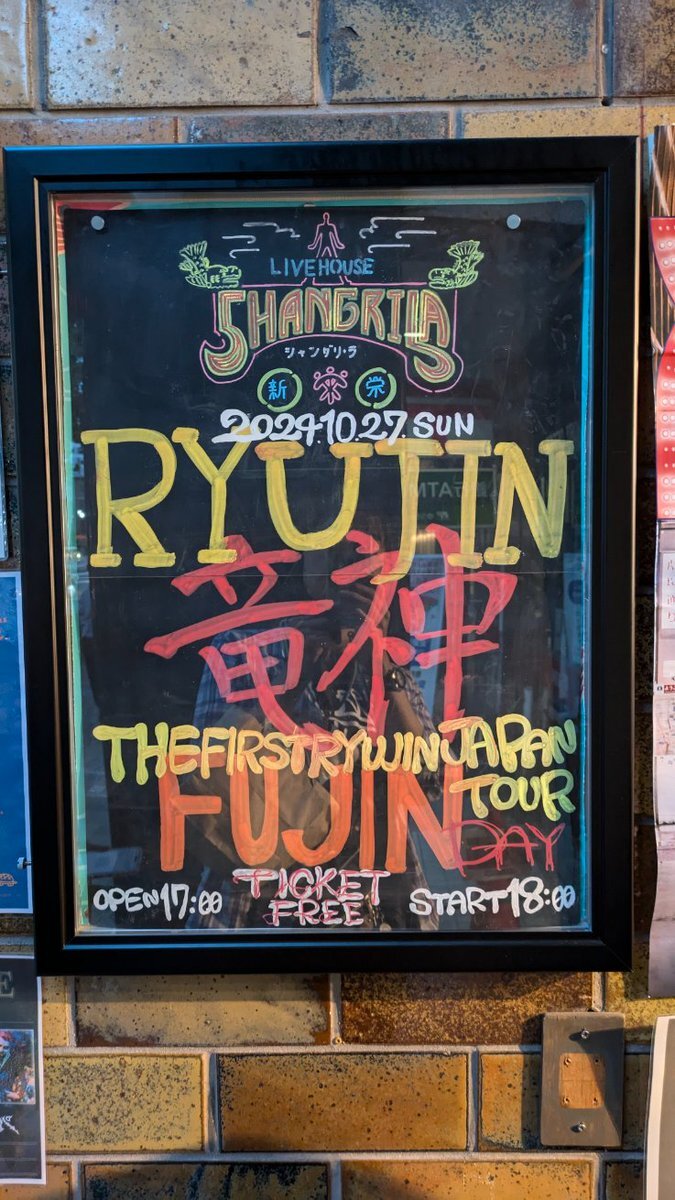 LIVEHOUSE
SHANGRILA
シャングリ・ラ
新 栄
2024.10.27.SUN
RYUJIN
竜神
THE FIRST RYWIN JAPAN
TOUR
FUJIN DAY
OPEN 17:00
TICKET
FREE
START 18:00
ATM